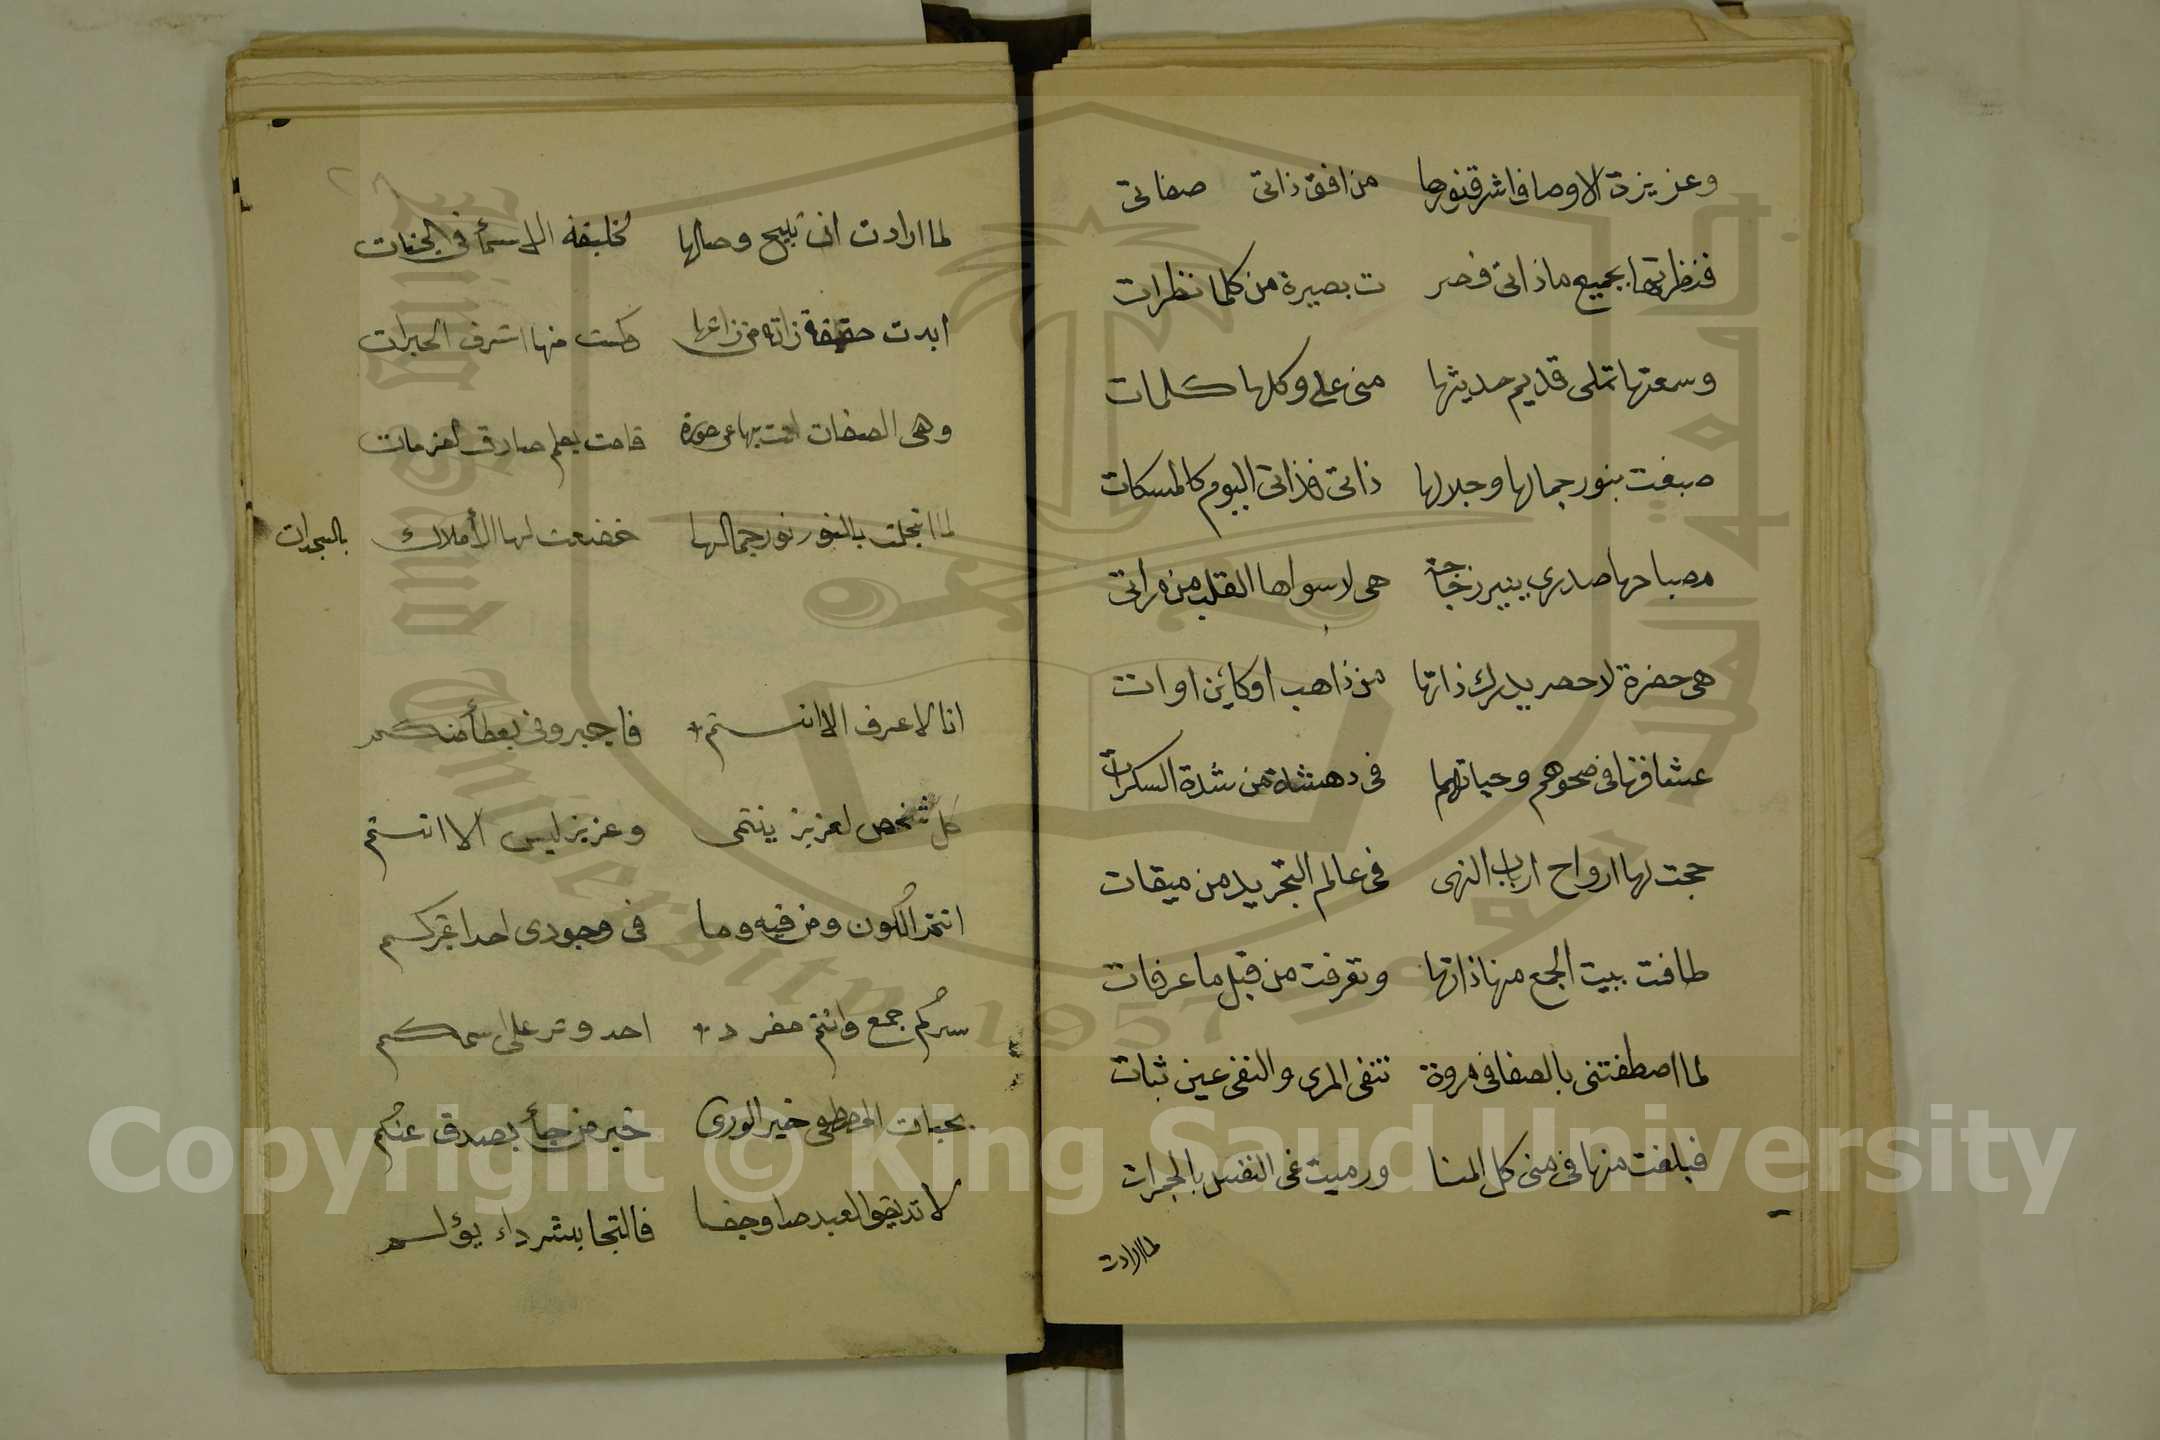 وعزيزة الاوصاف اشرق نورها من افق ذاتى صفاتى
فنظرتها بجميع ماذاتى فصر ت بصيرة من كلما نظرات
وسمعتها تملى قديم حديثها منى على وكلها كلمات
صبغت بنور جمالها وجلالها ذاتى فذاتى اليوم كالمسكات
مصباحها صدرى ينير زجاجة هى لا سواها القلب من مراتى
هى حضرة لا حصر يدرك ذاتها من ذاهب او كائن او انت
عشاقها فى صحوهم وحياتهم فى دهشة من شدة السكرات
حجت لها ارواح ارباب النهى فى عالم التجريد من ميقات
طافت ببيت الجمع منها ذاتها وتعرفت من قبل ما عرفات
لما اصطفتنى بالصفا فى مروة تنفى المرى والنفى عين ثبات
فبلغت منها فى منى كل المنا ورميت غى النفس بالجمرات
لما ارادت
لما ارادت ان تبيح وصالها لخليفة الاسمأ فى الجنات
ابدت حقيقة ذاته من ذاتها وكست منها اشرف الحبرات
وهى الصفات اتت بها عن صورة قامت بعلم صادق العزمات
لما انجلت بالنور نور جمالها خضعت لها الأملاك بالسجدات
انا لا اعرف الا انتم فاجبرونى بعطأ منكم
كل شخص لعزيز ينتمى وعزيز ليس الا انتم
انتم الكون ومن فيه وما فى وجودى احدا غيركم
سركم جمع وانتم مفرد احد وتر على اسمكم
بحبات المصطفى خير الورى خير من جأ بصدق عنكم
لا تذيقوا العبد صدا وجفا فالتجا بشر داء يؤلم
Copyright © King Saud University
King Saud University
جامعة الملك سعود
1957